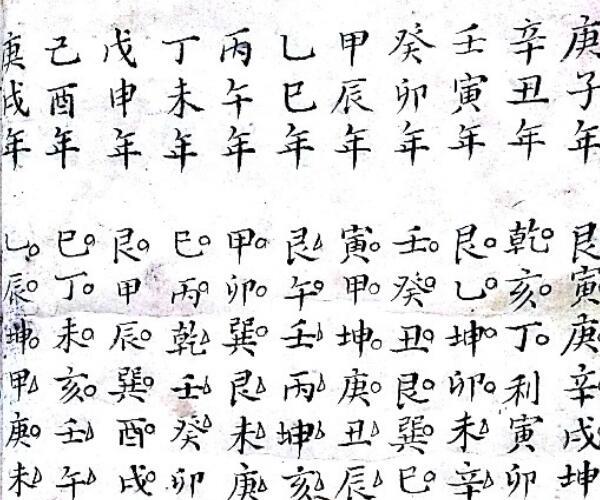 庚子年 艮寅庚辛戌坤
辛丑年 乾亥丁利寅卯
壬寅年 艮乙坤卯未辛
癸卯年 壬癸丑艮巽巳
甲辰年 寅甲坤庚丑辰
乙巳年 艮午壬丙坤亥
丙午年 甲卯巽艮未庚
丁未年 巳丙乾壬癸卯
戊申年 艮甲辰巽酉戌
己酉年 巳丁未亥壬午
庚戌年 乙辰坤甲庚未